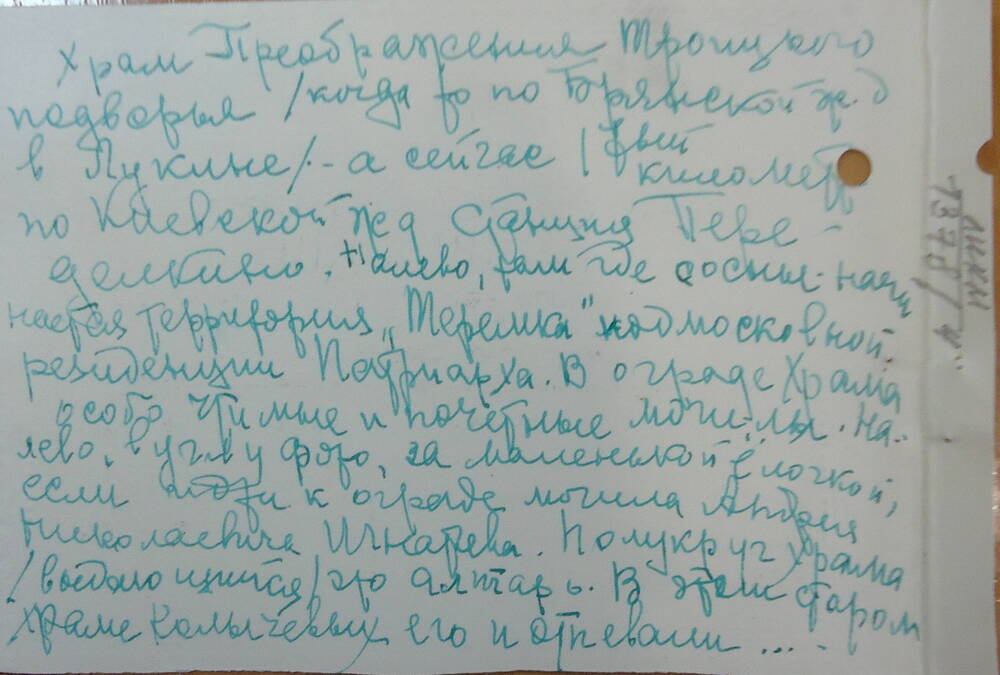 Храм Преображения Троицкого
подворья /когда то по Брянской ж.д
в Лукине/.- а сейчас
километр
по Киевской жд станция Пере-
делкино. Налево, там где сосны. начи
нается территория „Теремка" подмосковной
резиденции Патриарха. В ограде Храма
особо чтимые и почётные могилы. На-
лево, в углу фото, за маленькой ёлочкой,
если идти к ограде могила Андрея
Николаевича Игнатьева. Полукруг храма
/выдающийся/ это алтарь. В этом старом
храме Колычёвых его и отпевали ....
ЛИКМ
1378/